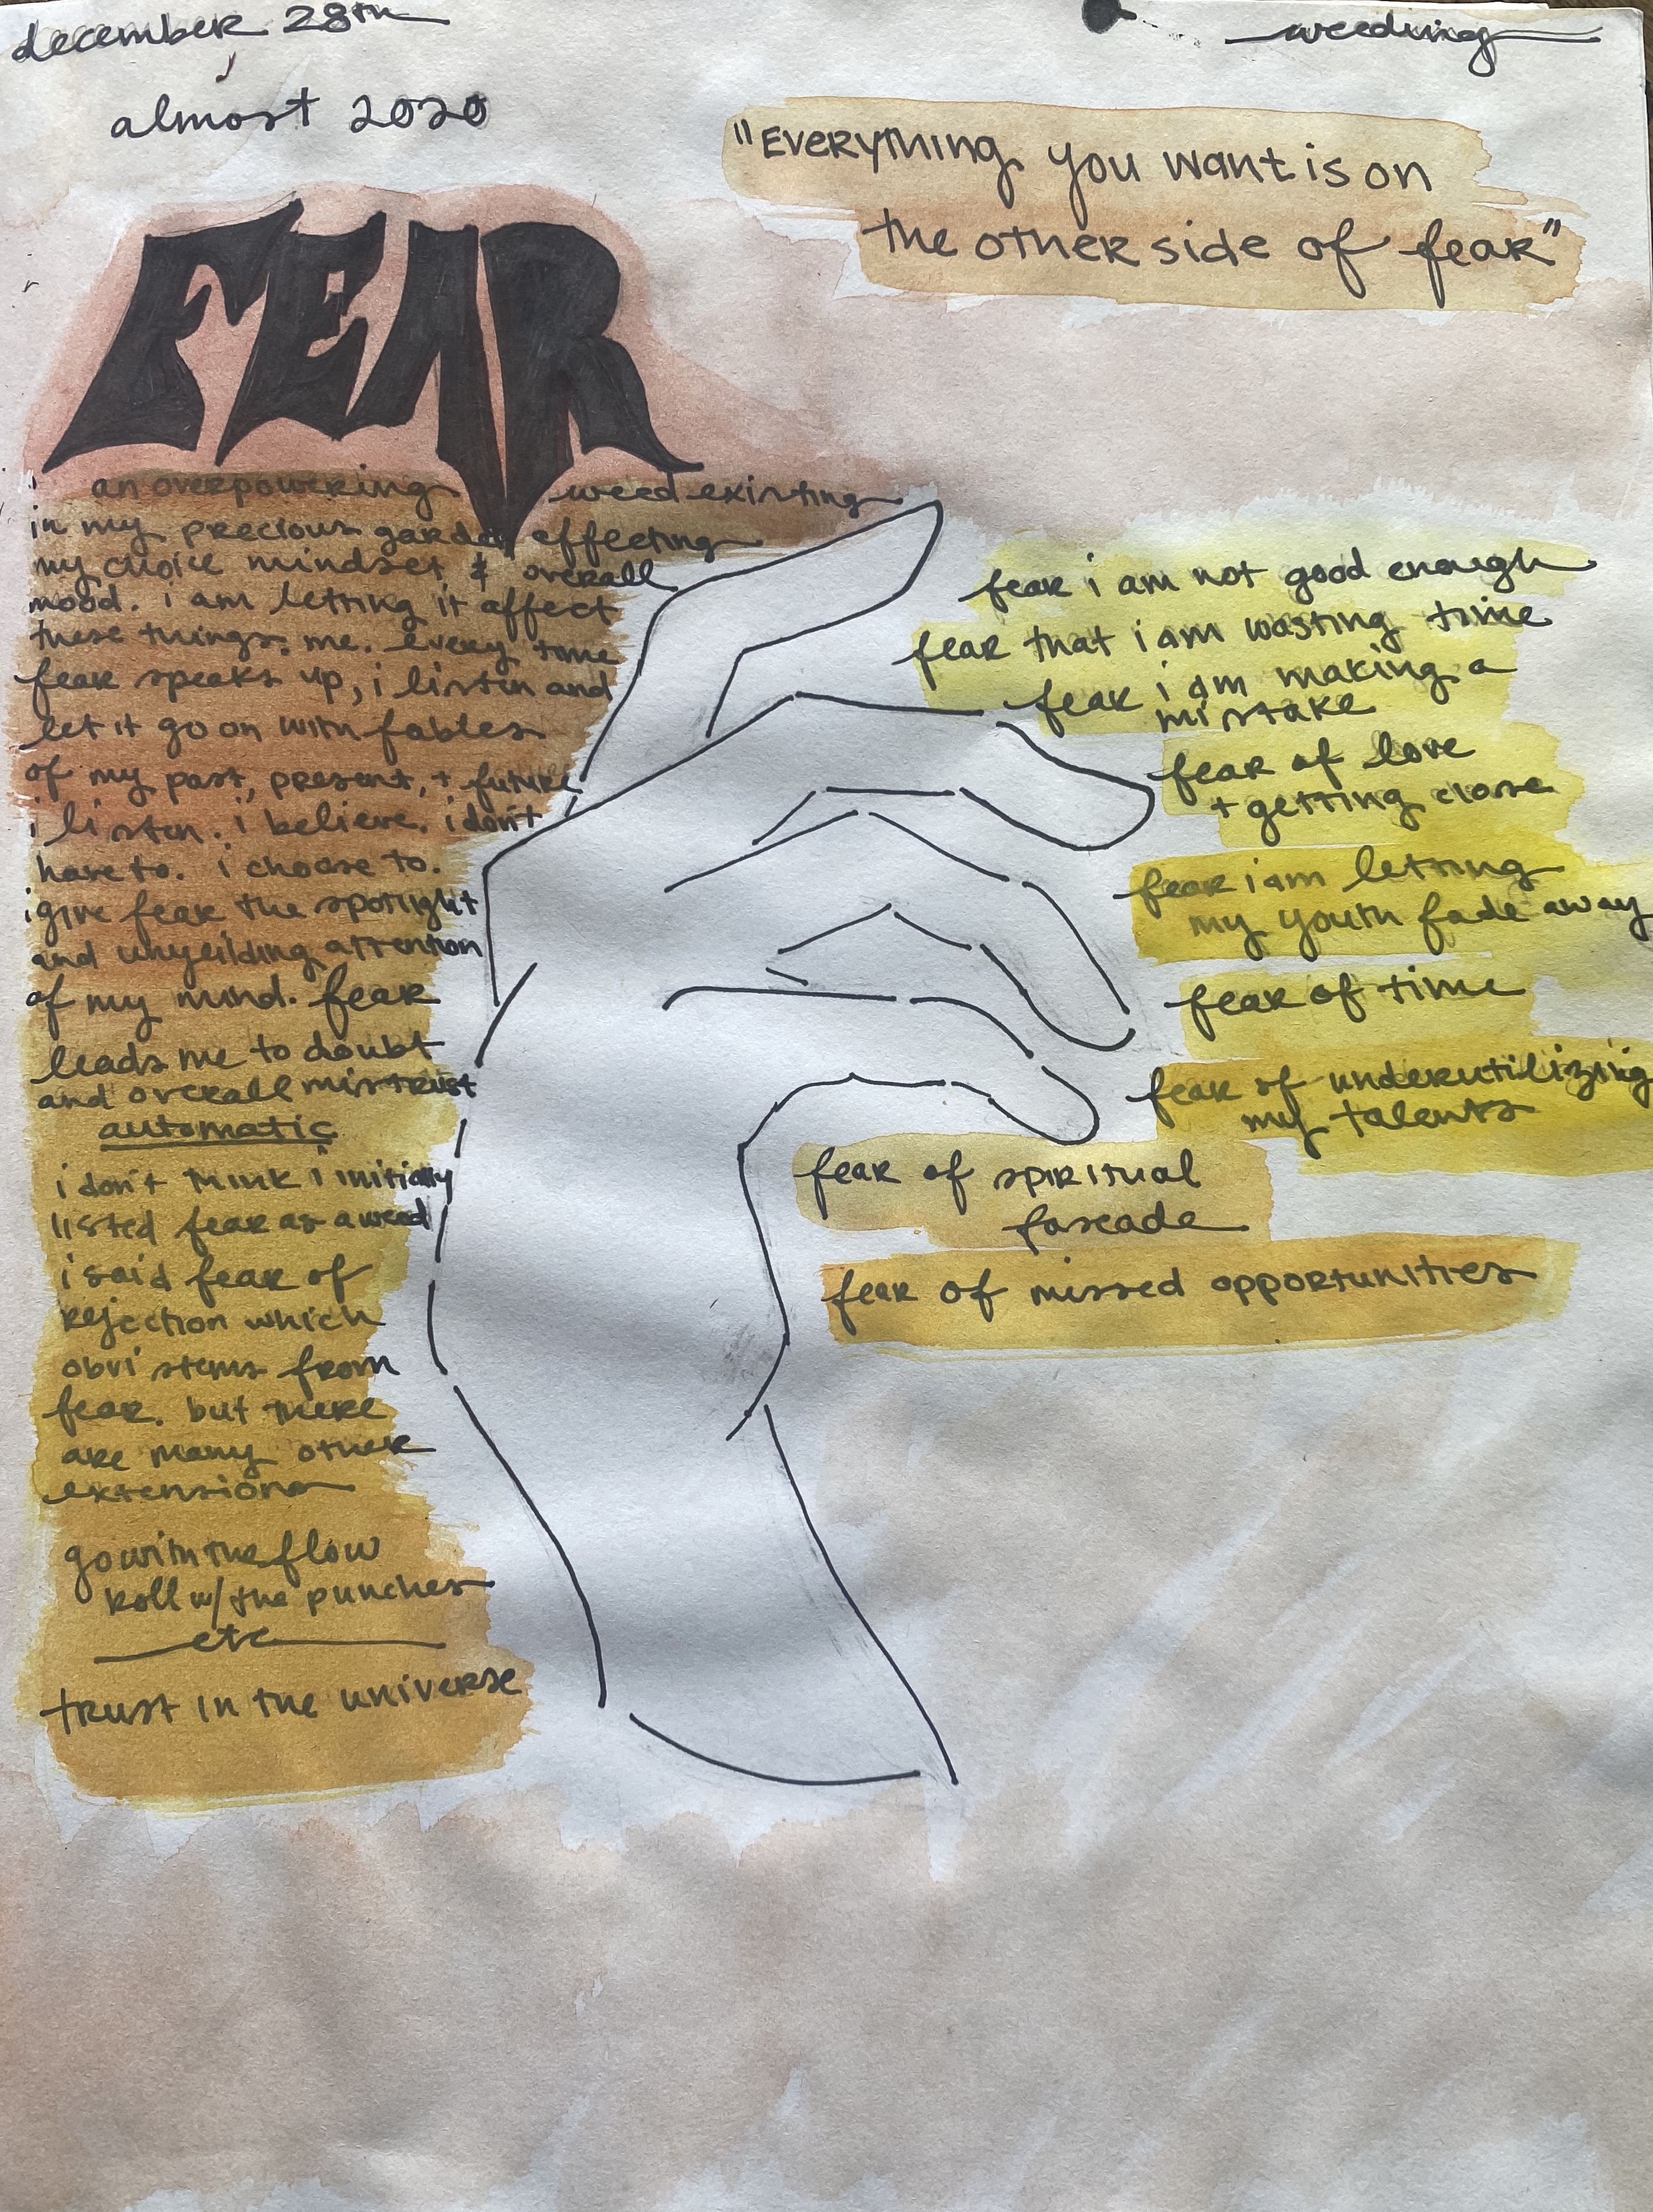 december 28th
weeding
almost 2020
"Everything you want is on
the other side of fear"
FEAR
an overpowering weed existing
in my precious garden effecting
my choice mindset & overall
mood. i am letting it affect
these things. me. every time
fear speaks up, i listen and
let it go on with fables
of my past, present, + future
i listen. i believe. i don't
have to. i choose to.
i give fear the spotlight
and unyeilding attention
of my mind. fear
leads me to doubt
and overall mistrust
automatic
i don't think i initially
listed fear as a weed
i said fear of
rejection which
obvi stems from
fear. but there
are many other
extensions
go with the flow
roll w/ the punches
etc
trust in the universe
fear i am not good enough
fear that i am wasting time
fear i am making a
mistake
fear of love
+ getting close
fear i am letting
my youth fade away
fear of time
fear of underutilizing
my talents
fear of spiritual
fascade
fear of missed opportunities